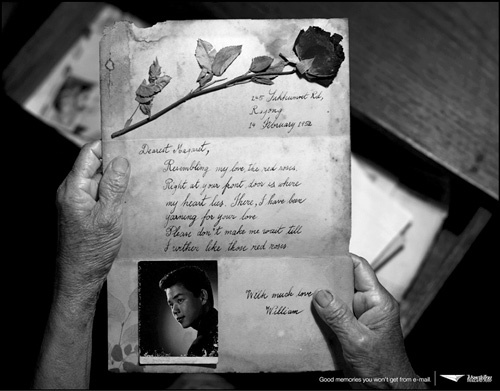 Rd,
Rayong
14 February 1952
Dearest Margaret,
Resembling my love, the red roses.
Right at your front door is where
my heart lies. There, I have been
yearning for your love
Please don't make me wait till
I wither like those red roses
With much love
William
Good memories you won't get from e-mail.